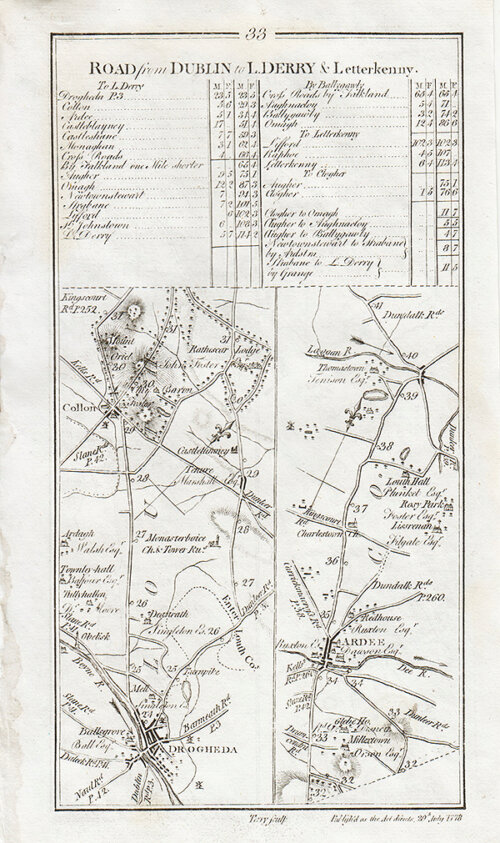 33
ROAD from DUBLIN to L. DERRY & Letterkenny.
To L. Derry M F M F
Drogheda P.3 23.5 23.5
Collon 5.6 29.3
Ardee 5.1 34.4
Castleblayney 17
Castleshane 7.7 59.3
Monaghan 3.1 62.4
Cross Roads 4
By Falkland one Mile shorter
Augher 9.5 75.1
Omagh 12.2 87.3
Newtownstewart 7 94.3
Strabane 7.2 101.5
Lifford 6 102.3
St. Johnstown 6 108.3
L. Derry 5.7 114.2
By Ballygawly M F M F
Cross Roads by Falkland 65.4 65.4
Aughnacloy 5.4 71
Ballygawly 3.2 74.2
Omagh 12.4 86.6
To Letterkenny
Lifford 102.3 102.3
Raphoe 4.5 107
Letterkenny 6.4 113.4
To Clogher
Augher 75.1
Clogher 1.5 76.6
Clogher to Omagh 11.7
Clogher to Aughnacloy 5.5
Clogher to Ballygawly 4.7
Newtownstewart to Strabane
by Ardstra 8.7
Strabane to L. Derry
by Grange 11.5
Kingscourt
Rd. P.252.
31
31
31
Mount
Oriel
30
30
30
John Foster
Esqr.
Rathscar Lodge
Baron
Kells Rd.
Collon
29
Slane Rd.
P.42
Castlelumney
Tenure
Marshall Esqr.
29
Dunleer
Rd.
28
27
Monasterboice
Ch. & Tower Rus.
27
Ardagh
Walsh Esqr.
Townley-hall
Balfour Esqr.
Tullyhallen
Moore
Slane Rd.
P.41
Obelisk
26
Singleton Esq.
26
Enter
Louth Co.
Dunleer Rd.
P.3.
25
25
Turnpike
Boyne R.
Mell
24
Slane Rd.
P.91
Ballsgrove
Ball Esqr.
Barmeath Rd.
P.3
DROGHEDA
Duleek Rd. P.41.
Naul Rd.
P.42.
Dublin
Rd. P.3.
LOUTH
41
Dundalk Rds.
40
Lagan R.
Thomastown
Tenison Esqr.
39
38
Louth Hall
Plunket Esqr.
Rosy Park
Foster Esqr.
Lisrenan
Filgate Esqr.
Kingscourt
Rd.
Charlestown Ch.
37
36
Carrickmacross Rd.
35
Dundalk Rds.
P.260.
Redhouse
Ruxton Esqr.
ARDEE
Ruxton E.
Dawson Esqr.
Kells
Rd. P.262
Dee R.
34
34
33
33
Dunleer Rd.
Glebe Ho.
Millextown
Orson Esqr.
32
32
Terry sculp.
Publish'd as the Act directs, 20th. July 1778